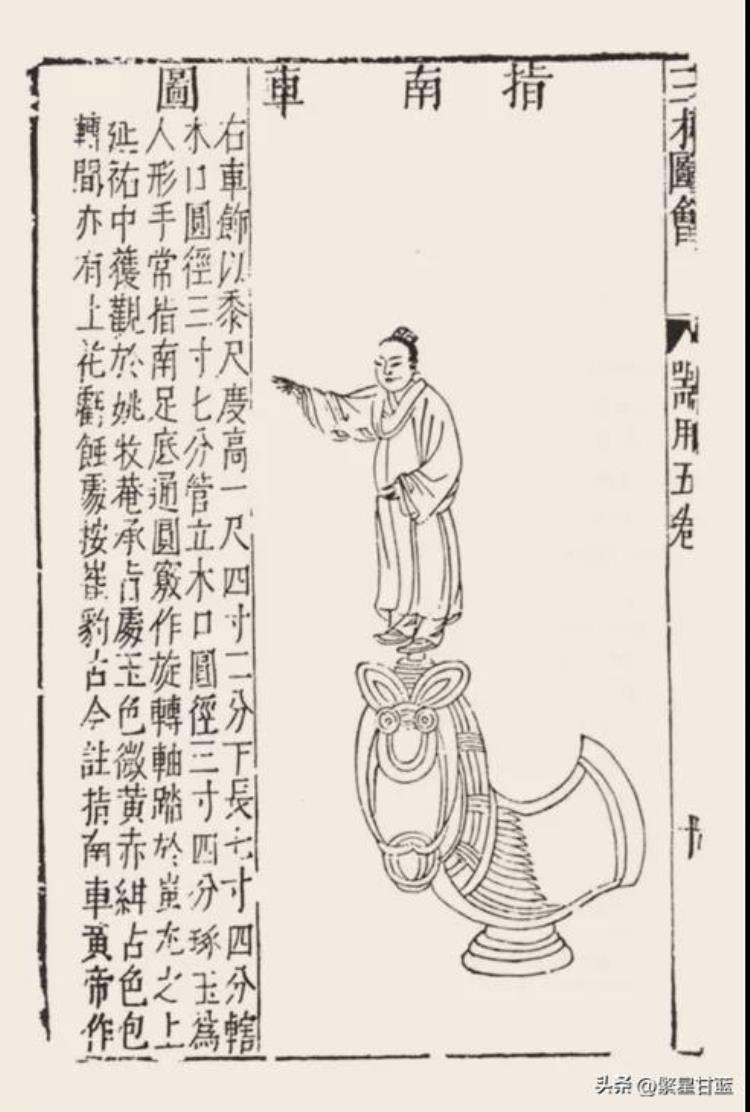 三才圖會
器用五卷
十
指南車圖
右車飾以黍尺度高一尺四寸二分下長七寸四分轄
木口圓徑三寸七分管立木口圓徑三寸四分琢玉為
人形手常指南足底通圓竅作旋轉軸踏於蚩尤之上
延祐中獲觀於姚牧菴承旨處玉色微黃赤紺古色包
轉間亦有土花虧蝕處按崔豹古今註指南車黃帝作
头条 @繁星甘蓝